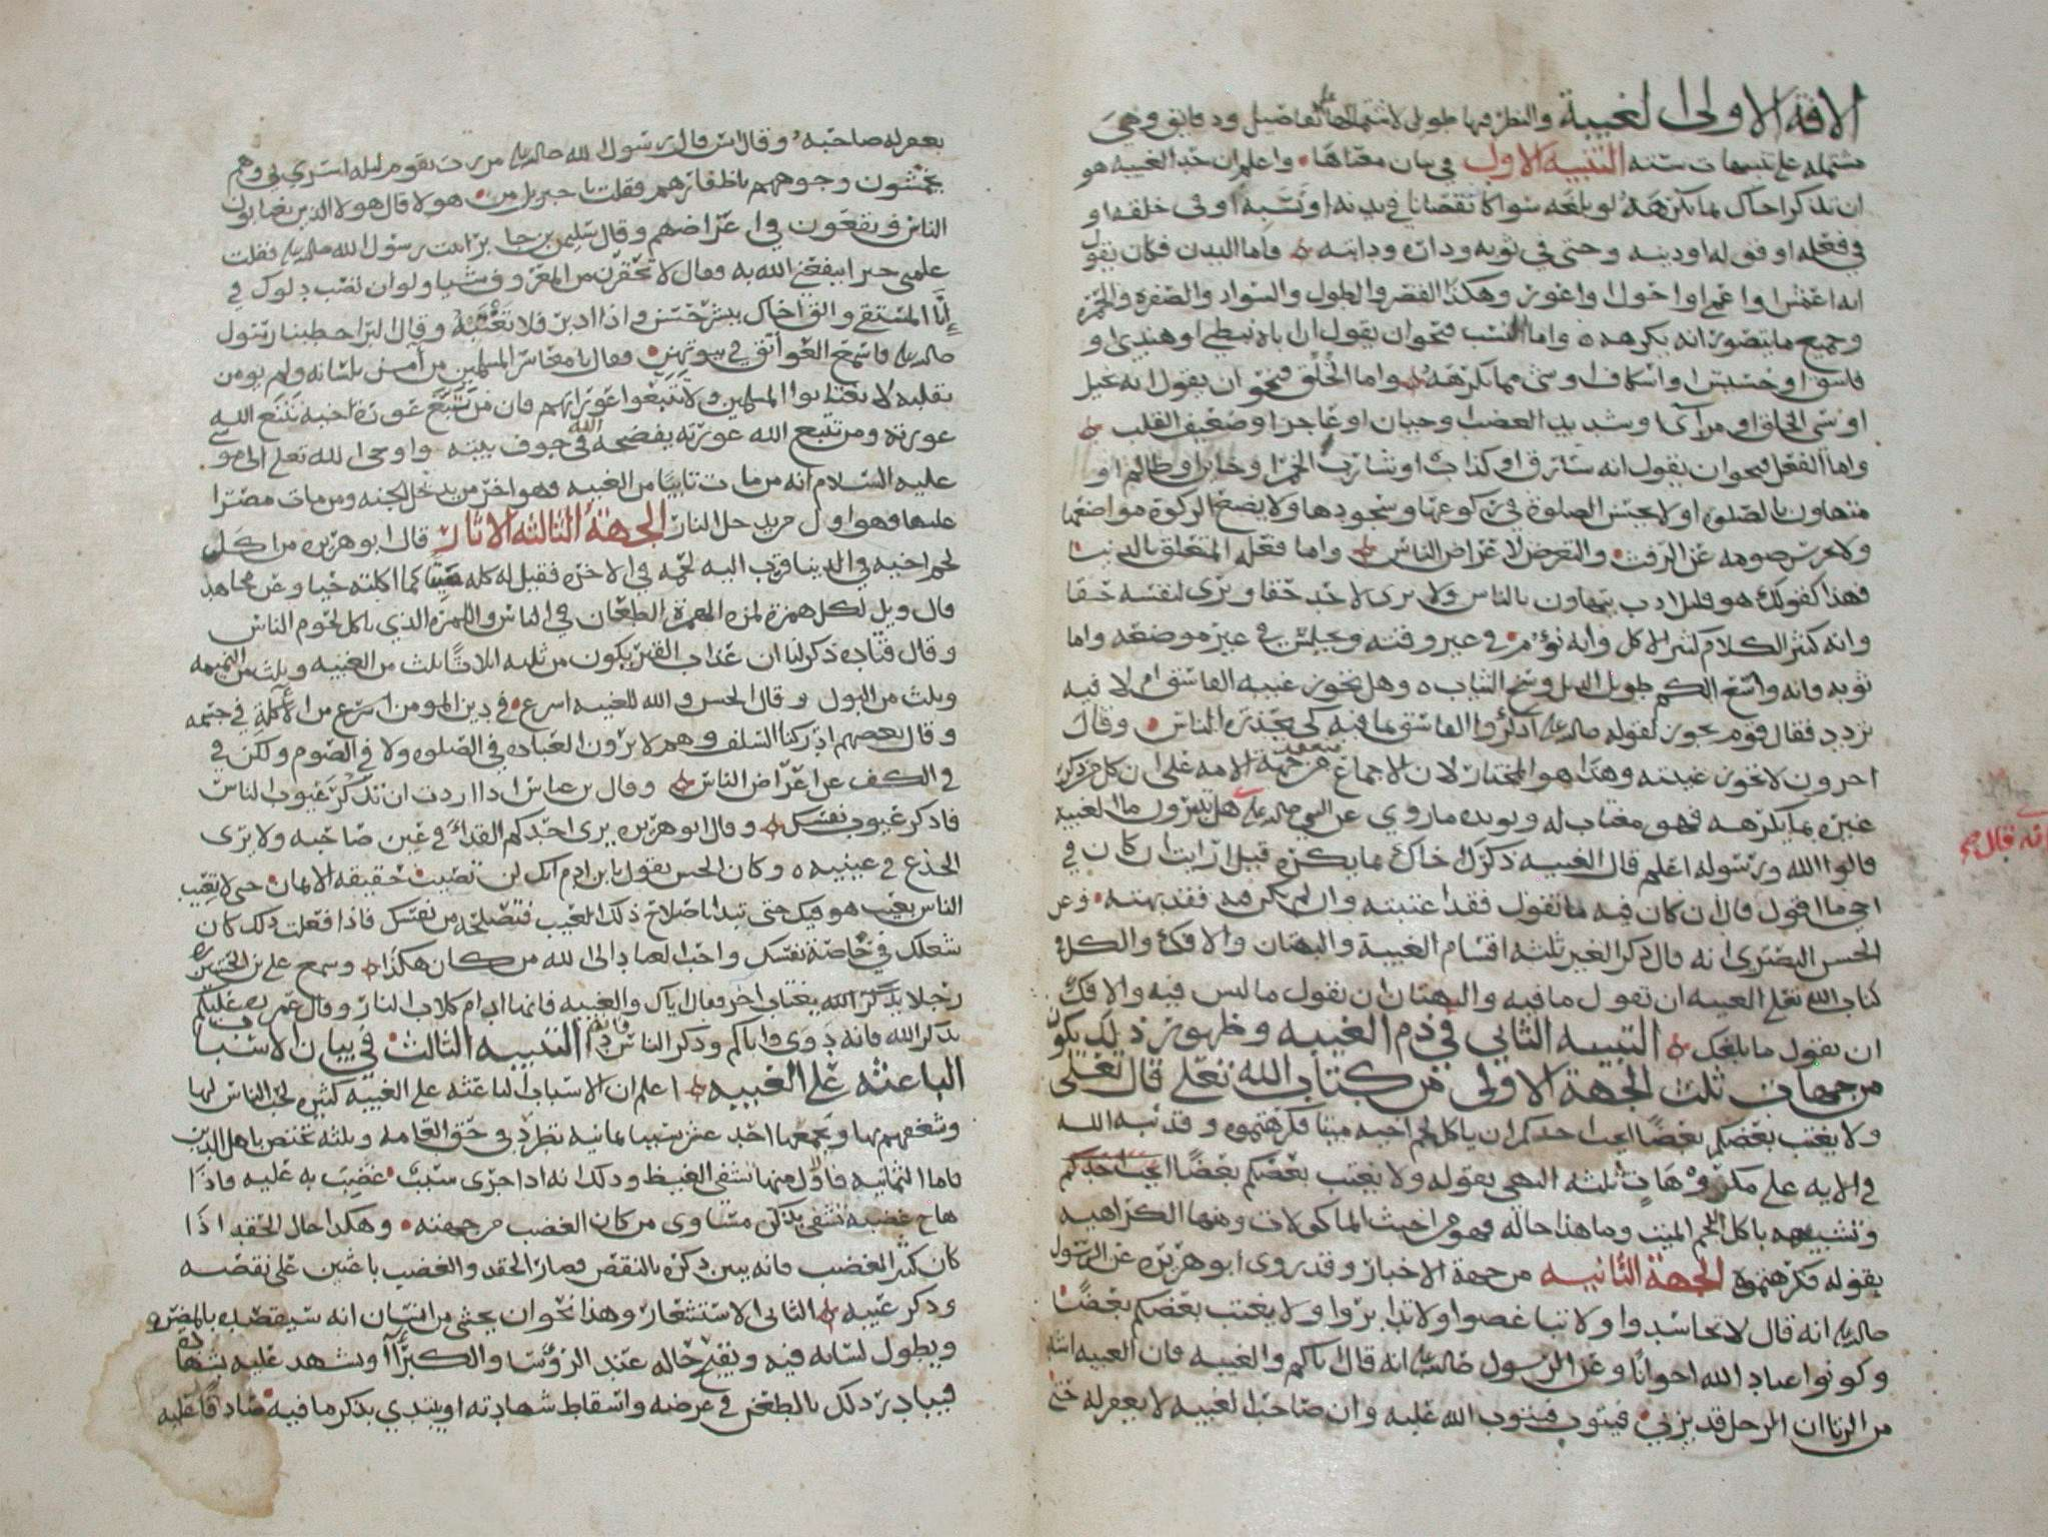 الافة الاولى الغيبة والنظر فيها طويل لاشتمالها على تفاصيل ودقايق وهي
مشتمله على تنبيهات سته التنبيه الاول في بيان معناها واعلم ان حد الغيبه هو
ان تذكر اخاك بما يكرهه لو بلغه سوا كا نقصانا في بدنه او نسبه او في خلقه او
في فعله او قوله او دينه وحتى في ثوبه وداره ودابته واما البدن فكان يقول
انه اعمش او اعمى او احول او اعور وهكذا القصر والطول والسواد والصفره والحمره
وجميع ما يتصور انه يكرهه واما النسب فنحو ان يقول ان اباه نبطي او هندي او
فاسق او خسيس او اسكاف او شي مما يكرهه واما الخلق فنحو ان يقول انه بخيل
او سي الخلق او مرآى او شديد الغضب او جبان او عاجز او ضعيف القلب
واما الفعل فنحو ان يقول انه سارق او كذاب او شارب الخمر او خاين او ظالم او
متهاون بالصلوة او لا يحسن الصلوة في ركوعها وسجودها ولا يضع الزكوة مواضعها
ولا يحرس صومه عن الرفث والتعرض لاعراض الناس واما فعله المتعلق بالدنيا
فهذا كقولك هو قليل ادب يتهاون بالناس ولا يرى لاحد حقا ويرى لنفسه حقا
وانه كثير الكلام كثير الاكل وانه نؤم في غير وقته ويجلس في غير موضعه واما
ثوبه فانه واسع الكم طويل الذيل وسخ الثياب وهل يجوز غيبه الفاسق ام لا فيه
تردد فقال قوم يجوز لقوله صلى الله عليه اذكروا الفاسق بما فيه كي يحذره الناس وقال
اخرون لا تجوز غيبته وهذا هو المختار لان الاجماع منعقد من جهة الامه على ان كل من ذكر
غيره بما يكرهه فهو مغتاب له ويويده ما روي عن النبي صلى الله عليه هل تدرون ما الغيبة
قالوا الله ورسوله اعلم قال الغيبه ذكرك اخاك بما يكره قيل ارايت ان كان في
اخي ما اقول قال ان كان فيه ما تقول فقد اغتبته وان لم يكن فيه فقد بهته وعن
الحسن البصري انه قال ذكر الغير ثلثه اقسام الغيبة والبهتان والافك والكل في
كتاب الله تعلى الغيبه ان تقول ما فيه والبهتان ان تقول ما ليس فيه والافك
ان تقول ما بلغك التنبيه الثاني في ذم الغيبه وظهور ذلك يكون
من جهات ثلث الجهة الاولى من كتاب الله تعلى قال تعلى
ولا يغتب بعضكم بعضا ايحب احدكم ان ياكل لحم اخيه ميتا فكرهتموه وقد نبه الله
في الايه على مكروهات ثلثه النهي بقوله ولا يغتب بعضكم بعضا ايحب احدكم
وتشبيهه باكل لحم الميت وما هذا حاله فهو من اخبث الماكولات ومنها الكراهيه
بقوله فكرهتموه الجهة الثانيه من جهة الاخبار وقد روى ابو هريره عن الرسول
صلى الله عليه انه قال لا تحاسدوا ولا تباغضوا ولا تدابروا ولا يغتب بعضكم بعضا
وكونوا عباد الله اخوانا وعن الرسول صلى الله عليه انه قال اياكم والغيبه فان الغيبه اشد
من الزنا ان الرجل قد يزني فيتوب فيتوب الله عليه وان صاحب الغيبه لا يغفر له حتى
انه قال
يغفر له صاحبه وقال انس قال رسول الله صلى الله عليه مررت بقوم ليله اسري بي وهم
يخمشون وجوههم باظفارهم فقلت يا جبريل من هولا قال هولا الذين يغتابون
الناس ويقعون في اعراضهم وقال سليم بن جابر اتيت رسول الله صلى الله عليه فقلت
علمني خيرا ينفعني الله به فقال لا تحقرن من المعروف شيا ولو ان تصب دلوك في
إنا المستقي والق اخاك ببشر حسن واذا ادبر فلا تغتبه وقال البرا خطبنا رسول
صلى الله عليه فاسمع العواتق في بيوتهن فقال يا معاشر المسلمين من آمن بلسانه ولم يومن
بقلبه لا تغتابوا المسلمين ولا تتبعوا عوراتهم فان من تتبع عورة اخيه تتبع الله
عورته ومن تتبع الله عورته يفضحه الله في جوف بيته واوحى الله تعلى الى موسى
عليه السلام انه من مات تايبا من الغيبه فهو اخر من يدخل الجنه ومن مات مصرا
عليها فهو اول من يدخل النار الجهة الثالثه الاثار قال ابو هريره من اكل
لحم اخيه في الدينا قرب اليه لحمه في الاخره فقيل له كله ميتا كما اكلته حيا وعن مجاهد
قال ويل لكل همزة لمزه الهمزة الطعان في الناس واللمزة الذي ياكل لحوم الناس
وقال قتاده ذكر لنا ان عذاب القبر يكون من ثلثه اثلاث ثلث من الغيبه وثلث من النميمه
وثلث من البول وقال الحسن والله للغيبه اسرع في دين المومن اسرع من الأكلة في جسمه
وقال بعضهم ادركنا السلف وهم لا يرون العباده في الصلوه ولا في الصوم ولكن في
في الكف عن اعراض الناس وقال بن عباس اذا اردت ان تذكر عيوب الناس
فاذكر عيوب نفسك وقال ابو هريره يرى احدكم القذا في عين صاحبه ولا يرى
الجذع في عينيه وكان الحسن يقول يا بن ادم انك لن تصيب حقيقه الايمان حتى لا تعيب
الناس بعيب هو فيك حتى تبدا باصلاح ذلك العيب فتصلحه من نفسك فاذا فعلت ذلك كان
شغلك في خاصة نفسك واحب العباد الى الله من كان هكذا وسمع علي بن الحسين
رجلا يغتاب اخر فقال اياك والغيبه فانها ادام كلاب النار وقال عمر عليكم
بذكر الله فانه دوى واياكم وذكر الناس فانه دا التنبيه الثالث في بيان الاسباب
الباعثه على الغيبه اعلم ان الاسباب الباعثه على الغيبه كثيره لحب الناس لها
وشغفهم بها ويجمعها احد عشر سببا ثمانيه تطرد في حق العامه وثلثه تختص باهل الدين
فاما الثمانيه فاول منها تشفى الغيظ وذلك انه اذا جرى سبب غضب به عليه فاذا
هاج غضبه تشفى بذكر مساوى من كان الغضب من جهته وهكذا حال الحقد اذا
كان كثير الغضب فانه يبين ذكره بالنقص فصار الحقد والغضب باعثين على نقصه
وذكر عيبه الثاني الاستشعار وهذا نحو ان يخشى من انسان انه سيقصده بالمضره
ويطول لسانه فيه ويقبح حاله عند الروسا والكبرآ او يشهد عليه بشهاده
فيبادر ذلك بالطعن في عرضه واسقاط شهادته او يبتدي بذكر ما فيه صادقا عليه